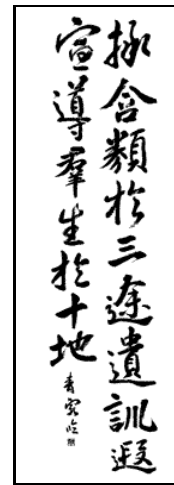 拯含類於三途遺訓遐
宣導群生於十地